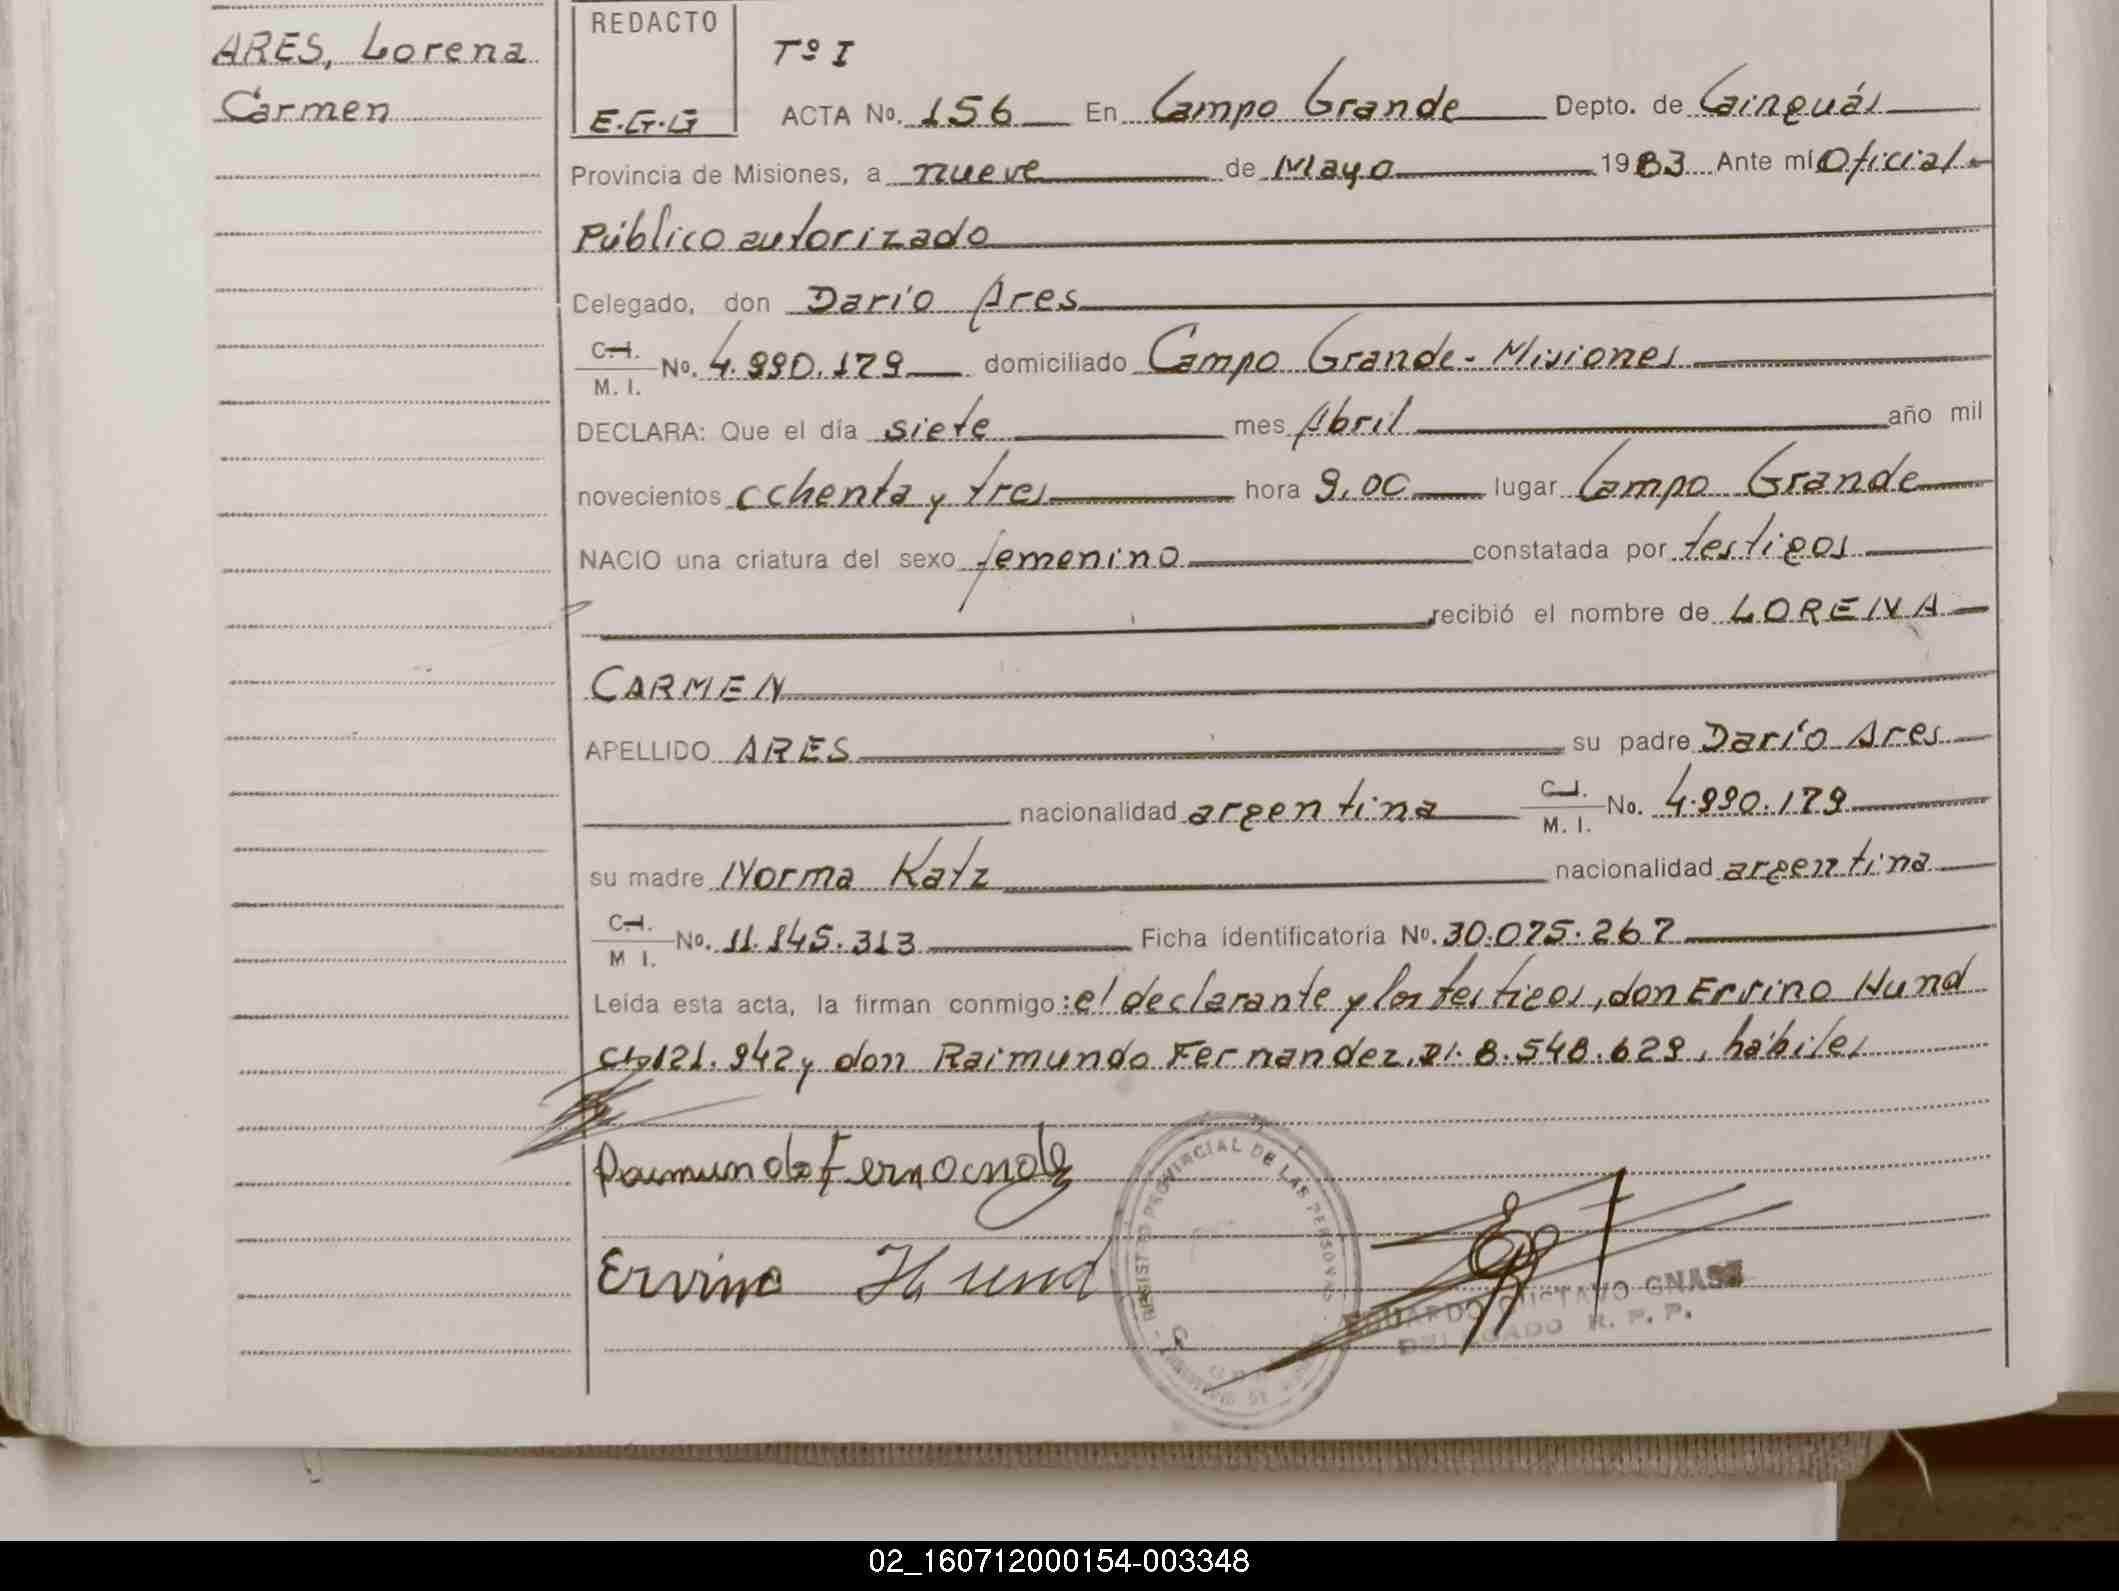 ARES, Lorena
Carmen
REDACTO
E.G.G
Tº I
ACTA No. 156 En Campo Grande Depto. de Cainguás
Provincia de Misiones, a nueve de Mayo 1983 Ante mí Oficial
Público autorizado
Celegado, don Darío Ares
C.I. M. I. No. 4.990.179 domiciliado Campo Grande - Misiones
DECLARA: Que el día siete mes Abril año mil
novecientos ochenta y tres hora 9,00 lugar Campo Grande
NACIO una criatura del sexo femenino constatada por testigos
recibió el nombre de LORENA
CARMEN
APELLIDO ARES su padre Darío Ares
nacionalidad argentina C.I. M. I. No. 4.990.179
su madre Norma Katz nacionalidad argentina
C.I. M I. No. 11.145.313 Ficha identificatoria No. 30.075.267
Leída esta acta, la firman conmigo: el declarante y los testigos, don Ervino Hund
121.942 y don Raimundo Fernandez, 8.548.629, hábiles
Raimundo Fernandez
Ervino Hund
REGISTRO PROVINCIAL DE LAS PERSONAS
EDUARDO GUSTAVO GNASS
DELEGADO R. P. P.
02_160712000154-003348